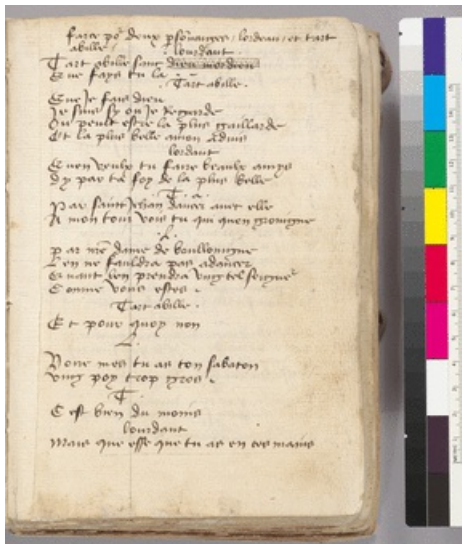 farce po' deux psonnaiges / lordeau / et tart
abille / lourdant .
Tart abille sanc dieu mordieu
Que fays tu la
Tart abille .
Que je fais dieu
Je suis sy ou je regarde
Ou peult estre la plus gaillarde
Et la plus belle a mon advis
lourdant
Et en veulx tu faire beaulx amys
dy par ta foy de la plus belle
. T . a .
Par saint Jehan dancer avec elle
A mon tour vois tu qui quen groingne
. L .
par nre dame de boullongne
Len ne fauldra pas a dancer
Quant len prendra ung tel seigne
Comme vous estes .
Tart abille .
Et pour quoy non
. L .
Pour mes tu as ton sabaton
ung poy trop gros .
. T .
C est bien du moins
lourdant
Mais que esse que tu as en tes mains